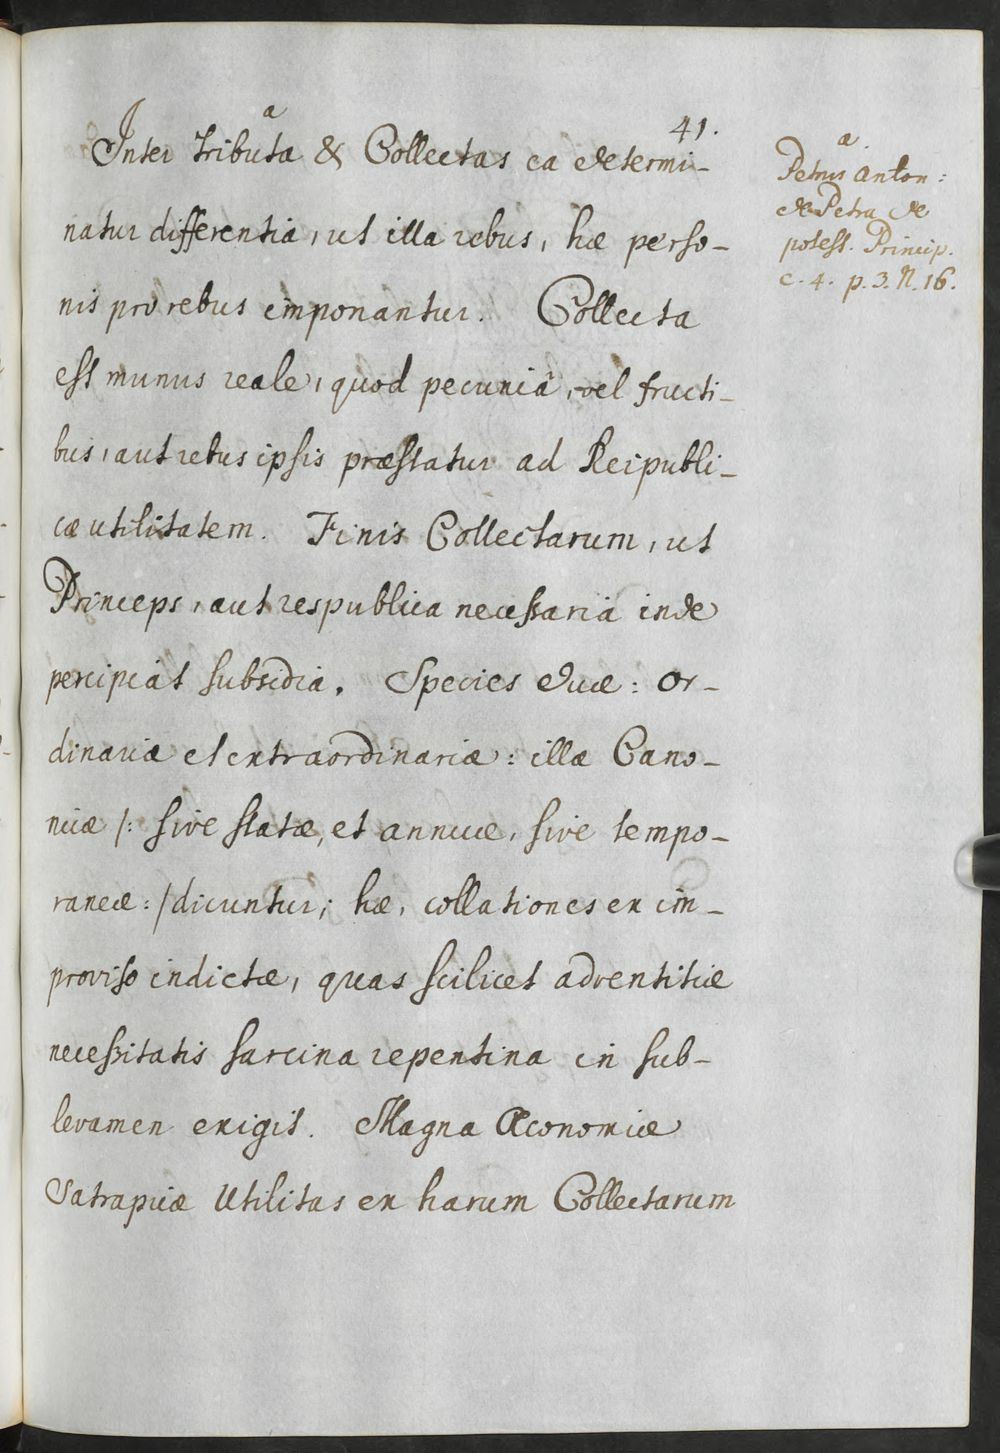 41.
Inter tributa ᵃ & Collectas ea determi-
natur differentia, ut illa rebus, hæ perso-
nis pro rebus imponantur. Collecta
est munus reale, quod pecuniâ, vel fructi-
bus, aut rebus ipsis præstatur ad Reipubli-
cæ utilitatem. Finis Collectarum, ut
Princeps, aut respublica necessaria inde
percipiat subsidia. Species duæ: Or-
dinariæ et extraordinariæ: illæ Cano-
nicæ /: sive statæ, et annuæ, sive tempo-
raneæ :/ dicuntur; hæ, collationes ex im-
proviso indictæ, quas scilicet adventitiæ
necessitatis sarcina repentina in sub-
levamen exigit. Magna Œconomiæ
Satrapicæ Utilitas ex harum Collectarum
a
Petrus Anton:
de Petra de
potest. Princip.
c. 4. p. 3. N. 16.